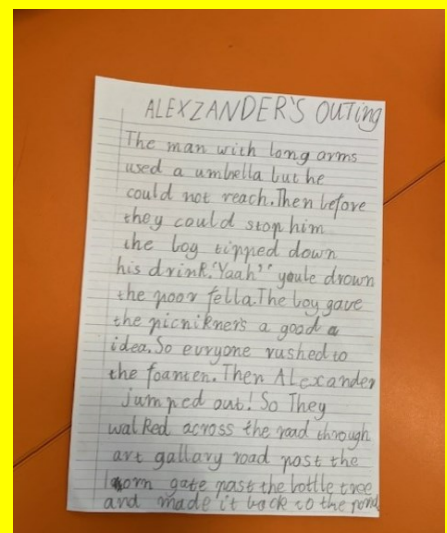 ALEXZANDER'S OUTing
The man with long arms
used a umbella but he
could not reach. Then before
they could stop him
the boy tipped down
his drink. "Yaah" youle drown
the poor fella. The boy gave
the picnikners a good a
idea. So euryone rushed to
the foanten. Then ALexcander
jumped out! So They
walked across the road through
art gallary road past the
gate past the bottle tree
and made it back to the pond